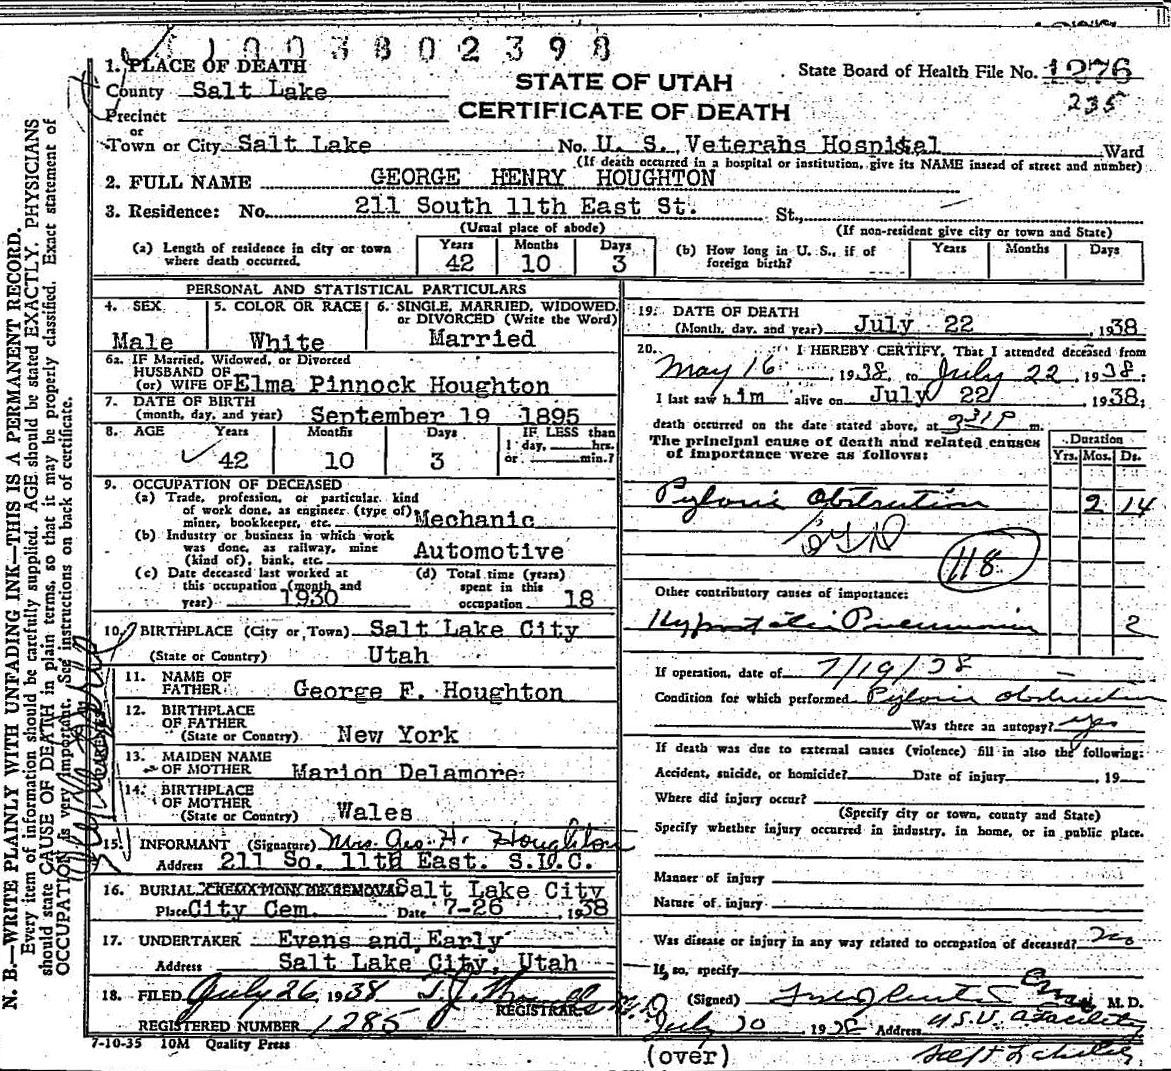 1003802398
1. PLACE OF DEATH
County Salt Lake
Precinct
or
Town or City Salt Lake No. U. S. Veterans Hospital Ward
STATE OF UTAH
CERTIFICATE OF DEATH
State Board of Health File No. 1276
235
(If death occurred in a hospital or institution, give its NAME insead of street and number)
2. FULL NAME GEORGE HENRY HOUGHTON
3. Residence: No. 211 South 11th East St. St.,
(Usual place of abode) (If non-resident give city or town and State)
(a) Length of residence in city or town where death occurred. Years 42 Months 10 Days 3
(b) How long in U. S., if of foreign birth? Years Months Days
PERSONAL AND STATISTICAL PARTICULARS
4. SEX Male
5. COLOR OR RACE White
6. SINGLE, MARRIED, WIDOWED, or DIVORCED (Write the Word) Married
6a. IF Married, Widowed, or Divorced
HUSBAND OF
(or) WIFE OF Elma Pinnock Houghton
7. DATE OF BIRTH
(month, day, and year) September 19 1895
8. AGE Years 42 Months 10 Days 3 IF LESS than 1 day, hrs. or min.?
9. OCCUPATION OF DECEASED
(a) Trade, profession, or particular kind
of work done, as engineer (type of)
miner, bookkeeper, etc. Mechanic
(b) Industry or business in which work
was done, as railway, mine
(kind of), bank, etc. Automotive
(c) Date deceased last worked at
this occupation (month and
year) 1930
(d) Total time (years)
spent in this
occupation 18
10. BIRTHPLACE (City or Town) Salt Lake City
(State or Country) Utah
11. NAME OF
FATHER George F. Houghton
12. BIRTHPLACE
OF FATHER
(State or Country) New York
13. MAIDEN NAME
OF MOTHER Marion Delamore
14. BIRTHPLACE
OF MOTHER
(State or Country) Wales
15. INFORMANT (Signature) Mrs. Geo. H. Houghton
Address 211 So. 11th East. S.L.C.
16. BURIAL Salt Lake City
Place City Cem. Date 7-26 1938
17. UNDERTAKER Evans and Early
Address Salt Lake City, Utah
18. FILED July 26, 1938
REGISTRAR
REGISTERED NUMBER 1285
7-10-35 10M Quality Press
19. DATE OF DEATH
(Month, day, and year) July 22 1938
20. I HEREBY CERTIFY, That I attended deceased from
May 16, 1938, to July 22, 1938;
I last saw him alive on July 22 1938;
death occurred on the date stated above, at 331P m.
The principal cause of death and related causes
of importance were as follows:
Duration
Yrs. Mos. Ds.
Pyloric Obstruction 2 14
118
Other contributory causes of importance:
Hypostatic Pneumonia 2
If operation, date of 7/19/38
Condition for which performed Pyloric Obstruction
Was there an autopsy? yes
If death was due to external causes (violence) fill in also the following:
Accident, suicide, or homicide? Date of injury , 19
Where did injury occur?
(Specify city or town, county and State)
Specify whether injury occurred in industry, in home, or in public place.
Manner of injury
Nature of injury
Was disease or injury in any way related to occupation of deceased? no
If, so, specify
(Signed) M. D.
Address U.S.V. Facility
Salt Lake City
(over)
N. B.—WRITE PLAINLY WITH UNFADING INK—THIS IS A PERMANENT RECORD.
Every item of information should be carefully supplied. AGE should be stated EXACTLY. PHYSICIANS
should state CAUSE OF DEATH in plain terms, so that it may be properly classified. Exact statement of
OCCUPATION is very important. See instructions on back of certificate.